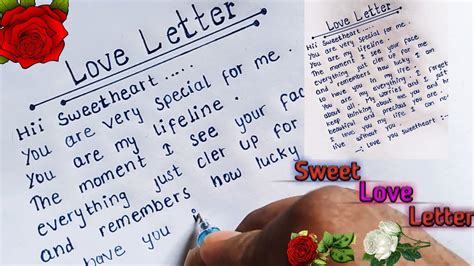 Love Letter
Hii Sweetheart .....
You are very special for me.
You are my lifeline.
The moment I see your face
everything just cler up for
and remembers how lucky
have you
Love Letter
Hii Sweetheart.....
You are very special for me.
You are my lifeline.
The moment I see your face
everything just cler up for me
and remembers how lucky I
have you in my life. I forget
all my worries and I just
about
keep
beautiful and precious you are.
I love you my life. I can no
live without you.
:- Love you sweetheart :-
Sweet
Love
Letter